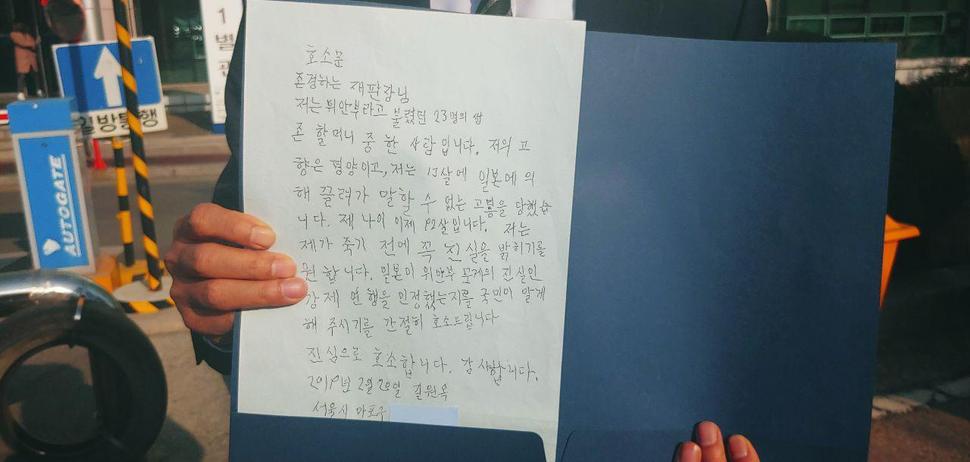 1
별
관
일방통행
AUTOGATE
호소문
존경하는 재판장님
저는 위안부라고 불렸던 23명의 생
존 할머니 중 한 사람입니다. 저의 고
향은 평양이고, 저는 13살에 일본에 의
해 끌려가 말할 수 없는 고통을 당했습
니다. 제 나이 이제 92살입니다. 저는
제가 죽기 전에 꼭 진실을 밝히기를
원합니다. 일본이 위안부 문제의 진실인
강제 연행을 인정했는지를 국민이 알게
해 주시기를 간절히 호소드립니다
진심으로 호소합니다. 감사합니다.
2019년 2월 20일 길원옥
서울시 마포구